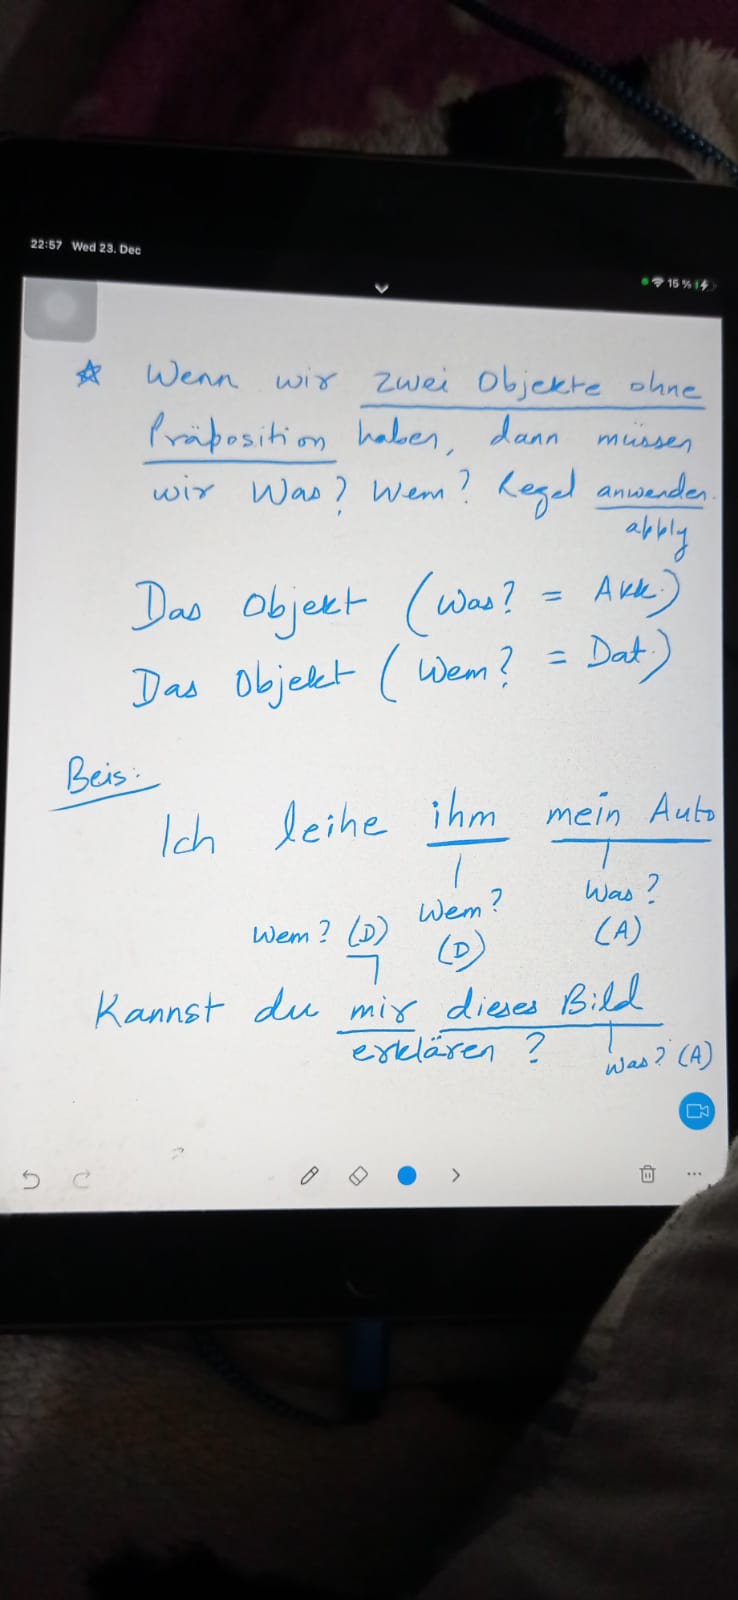 22:57 Wed 23. Dec
15 %
☆ Wenn wir zwei Objekte ohne
Präposition haben, dann müssen
wir Was? Wem? Regel anwenden.
apply
Das Objekt (Was? = Akk.)
Das Objekt (Wem? = Dat.)
Beis:
Ich leihe ihm mein Auto
Wem? Was?
(D) (A)
Wem? (D)
Kannst du mir dieses Bild
erklären ? Was? (A)